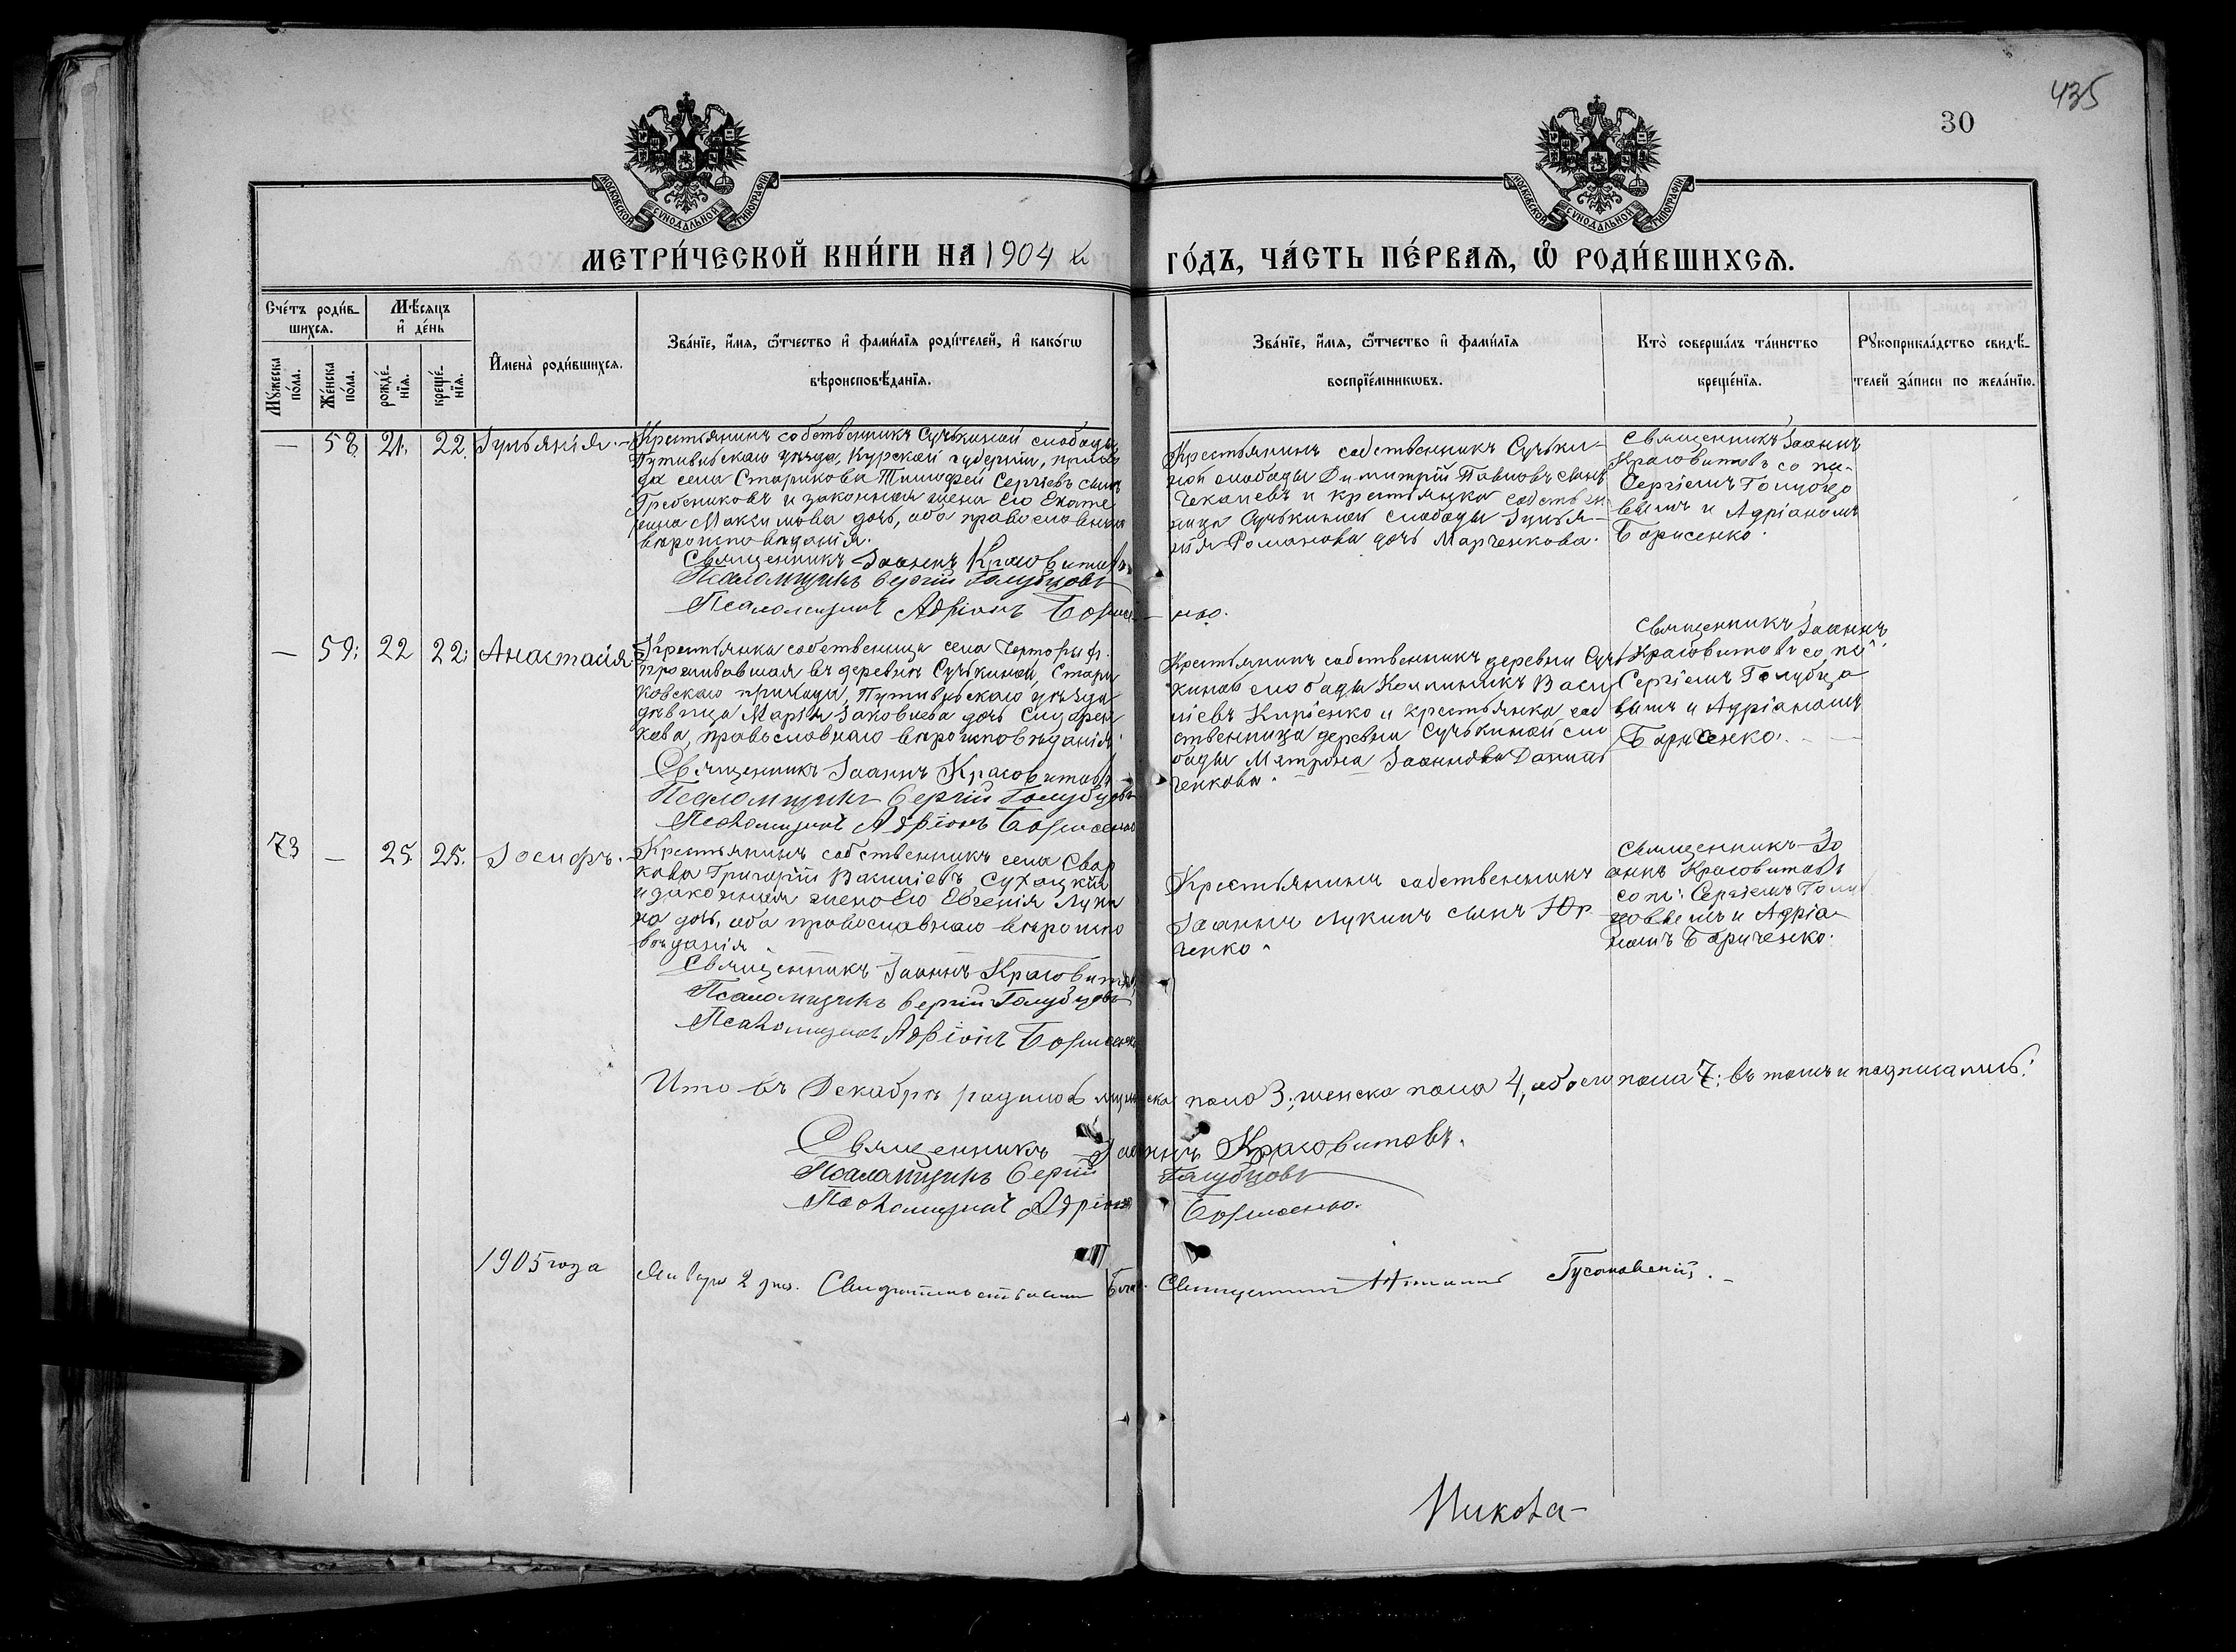 435
30
МОСКОВСКОЙ СѴНОДАЛЬНОЙ ТИПОГРАФІИ.
МОСКОВСКОЙ СѴНОДАЛЬНОЙ ТИПОГРАФІИ.
МЕТРИ́ЧЕСКОЙ КНИ́ГИ НА 1904 й ГО́ДЪ, ЧА́СТЬ ПЕ́РВАѦ, Ѡ҆ РОДИ́ВШИХСѦ.
Сче́тъ роди́в-
шихсѧ.
Мѣ́сѧцъ
и҆ де́нь
Мꙋ́жеска
по́ла.
Же́нска
по́ла.
рожде́-
нїѧ.
креще́-
нїѧ.
И҆мена̀ роди́вшихсѧ.
Зва́нїе, и҆́мѧ, ѻ҆́тчество и҆ фами́лїѧ роди́телей, и҆ како́гѡ
вѣроисповѣ́данїѧ.
Зва́нїе, и҆́мѧ, ѻ҆́тчество и҆ фами́лїѧ
воспрїе́мникѡвъ.
Кто̀ соверша́лъ та́инство
креще́нїѧ.
Рꙋкоприкла́дство свидѣ́-
телей за́писи по жела́нїю.
— 58 21. 22. Іуліанія. —
Крестьянинъ собственникъ Сучкиной слободы
Путивльскаго уѣзда, Курской губерніи, прихо
да села Старикова Тимофей Сергіевъ сынъ
Гребениковъ и законная жена его Екате
рина Максимова дочь, оба православнаго
вѣроисповѣданія.
Священникъ Іоаннъ Красовитовъ
Псаломщикъ Сергій Голубцовъ
Псаломщикъ Адріанъ Борисен-
ко.
Крестьянинъ собственникъ Сучки-
ной слободы Димитрій Павловъ сынъ
Чекаловъ и крестьянка собствен
ница Сучкиной слободы Іуліа-
нія Романова дочь Марченкова.
Священникъ Іоаннъ
Красовитовъ со пс-
Сергіемъ Голубцо
вымъ и Адріаномъ
Борисенко.
— 59. 22 22. Анастасія
Крестьянка собственница села
проживавшая въ деревнѣ Сучкиной, Стари
ковскаго прихода, Путивльскаго уѣзда
дѣвица Марія Іаковлева дочь Сидорен
кова, православнаго вѣроисповѣданія
Священникъ Іоаннъ Красовитовъ
Псаломщикъ Сергій Голубцовъ
Псаломщикъ Адріанъ Борисенко
Крестьянинъ собственникъ деревни Суч
киной слободы Каллиникъ Васи
ліевъ Киріенко и крестьянка соб
ственница деревни Сучкиной сло
боды Матрона Іоаннова Даниль
ченкова.
Священникъ Іоаннъ
Красовитовъ со пс:
Сергіемъ Голубцо
вымъ и Адріаномъ
Борисенко. —
73 — 25. 25. Іосифъ. —
Крестьянинъ собственникъ села Свар
кова Григорій Василіевъ Сухацкій
и законная жена его Евгенія Луки
на дочь, оба православнаго вѣроиспо
вѣданія.
Священникъ Іоаннъ Красовитовъ
Псаломщикъ Сергій Голубцовъ
Псаломщикъ Адріанъ Борисенко
Крестьянинъ собственникъ
Іоаннъ Лукинъ сынъ Юр
ченко.
Священникъ Іо
аннъ Красовитовъ
со пс: Сергіемъ Голуб
цовымъ и Адріа-
номъ Борисенко.
Итого въ Декабрѣ родилось мужеска пола 3; женска пола 4, обоего пола 7; въ томъ и подписались:
Священникъ Іоаннъ Красовитовъ.
Псаломщикъ Сергій Голубцовъ
Псаломщикъ Адріанъ Борисенко.
1905 года Января 2 дня. Священникъ